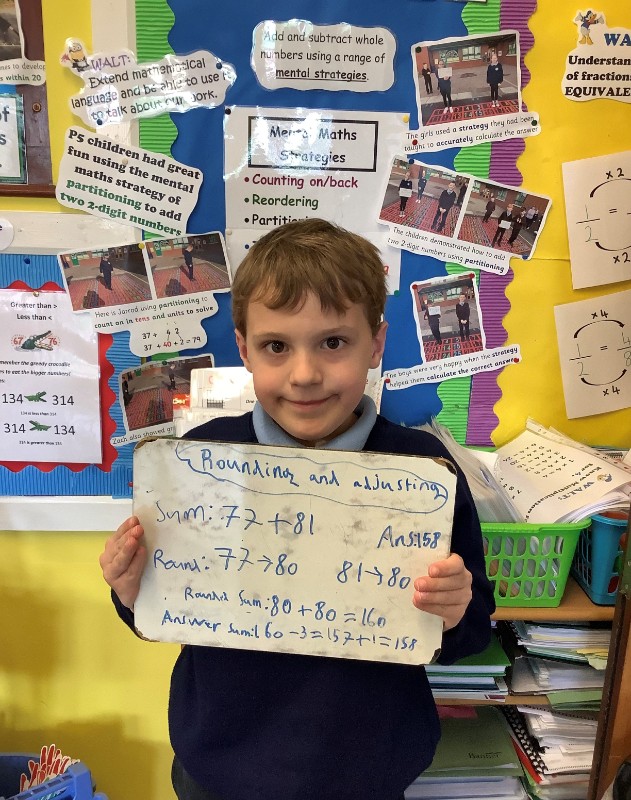 e comes to develop
s within 20
of
WALT:
Extend mathematical
language and be able to use it
to talk about our work.
P5 children had great
fun using the mental
maths strategy of
partitioning to add
two 2-digit numbers
Add and subtract whole
numbers using a range of
mental strategies.
Mental Maths
Strategies
• Counting on/back
• Reordering
• Partitio
The girls used a strategy they had been
taught to accurately calculate the answer
The children demonstrated how to
add two 2-digit numbers using partitioning
The boys were very happy when the strategy
helped them calculate the correct answer
Here is Jarrod using partitioning to
count on in tens and units to solve
37 + 42
37 + 40 + 2 = 79
Zach also showed
Greater than >
Less than <
67 76
emember the greedy crocodile
es to eat the bigger numbers!
134 314
134 is less than 314
314 134
314 is greater than 134
WA
Understan
of fraction
EQUIVALE
x2
1
2
x2
x4
1 4
2 8
x4
WALT:
Rounding and adjusting
Sum: 77 + 81
Ans:158
Round: 77 → 80 81 → 80
Rounded Sum: 80 + 80 = 160
Answer sum: 160 - 3 = 157 + 1 = 158